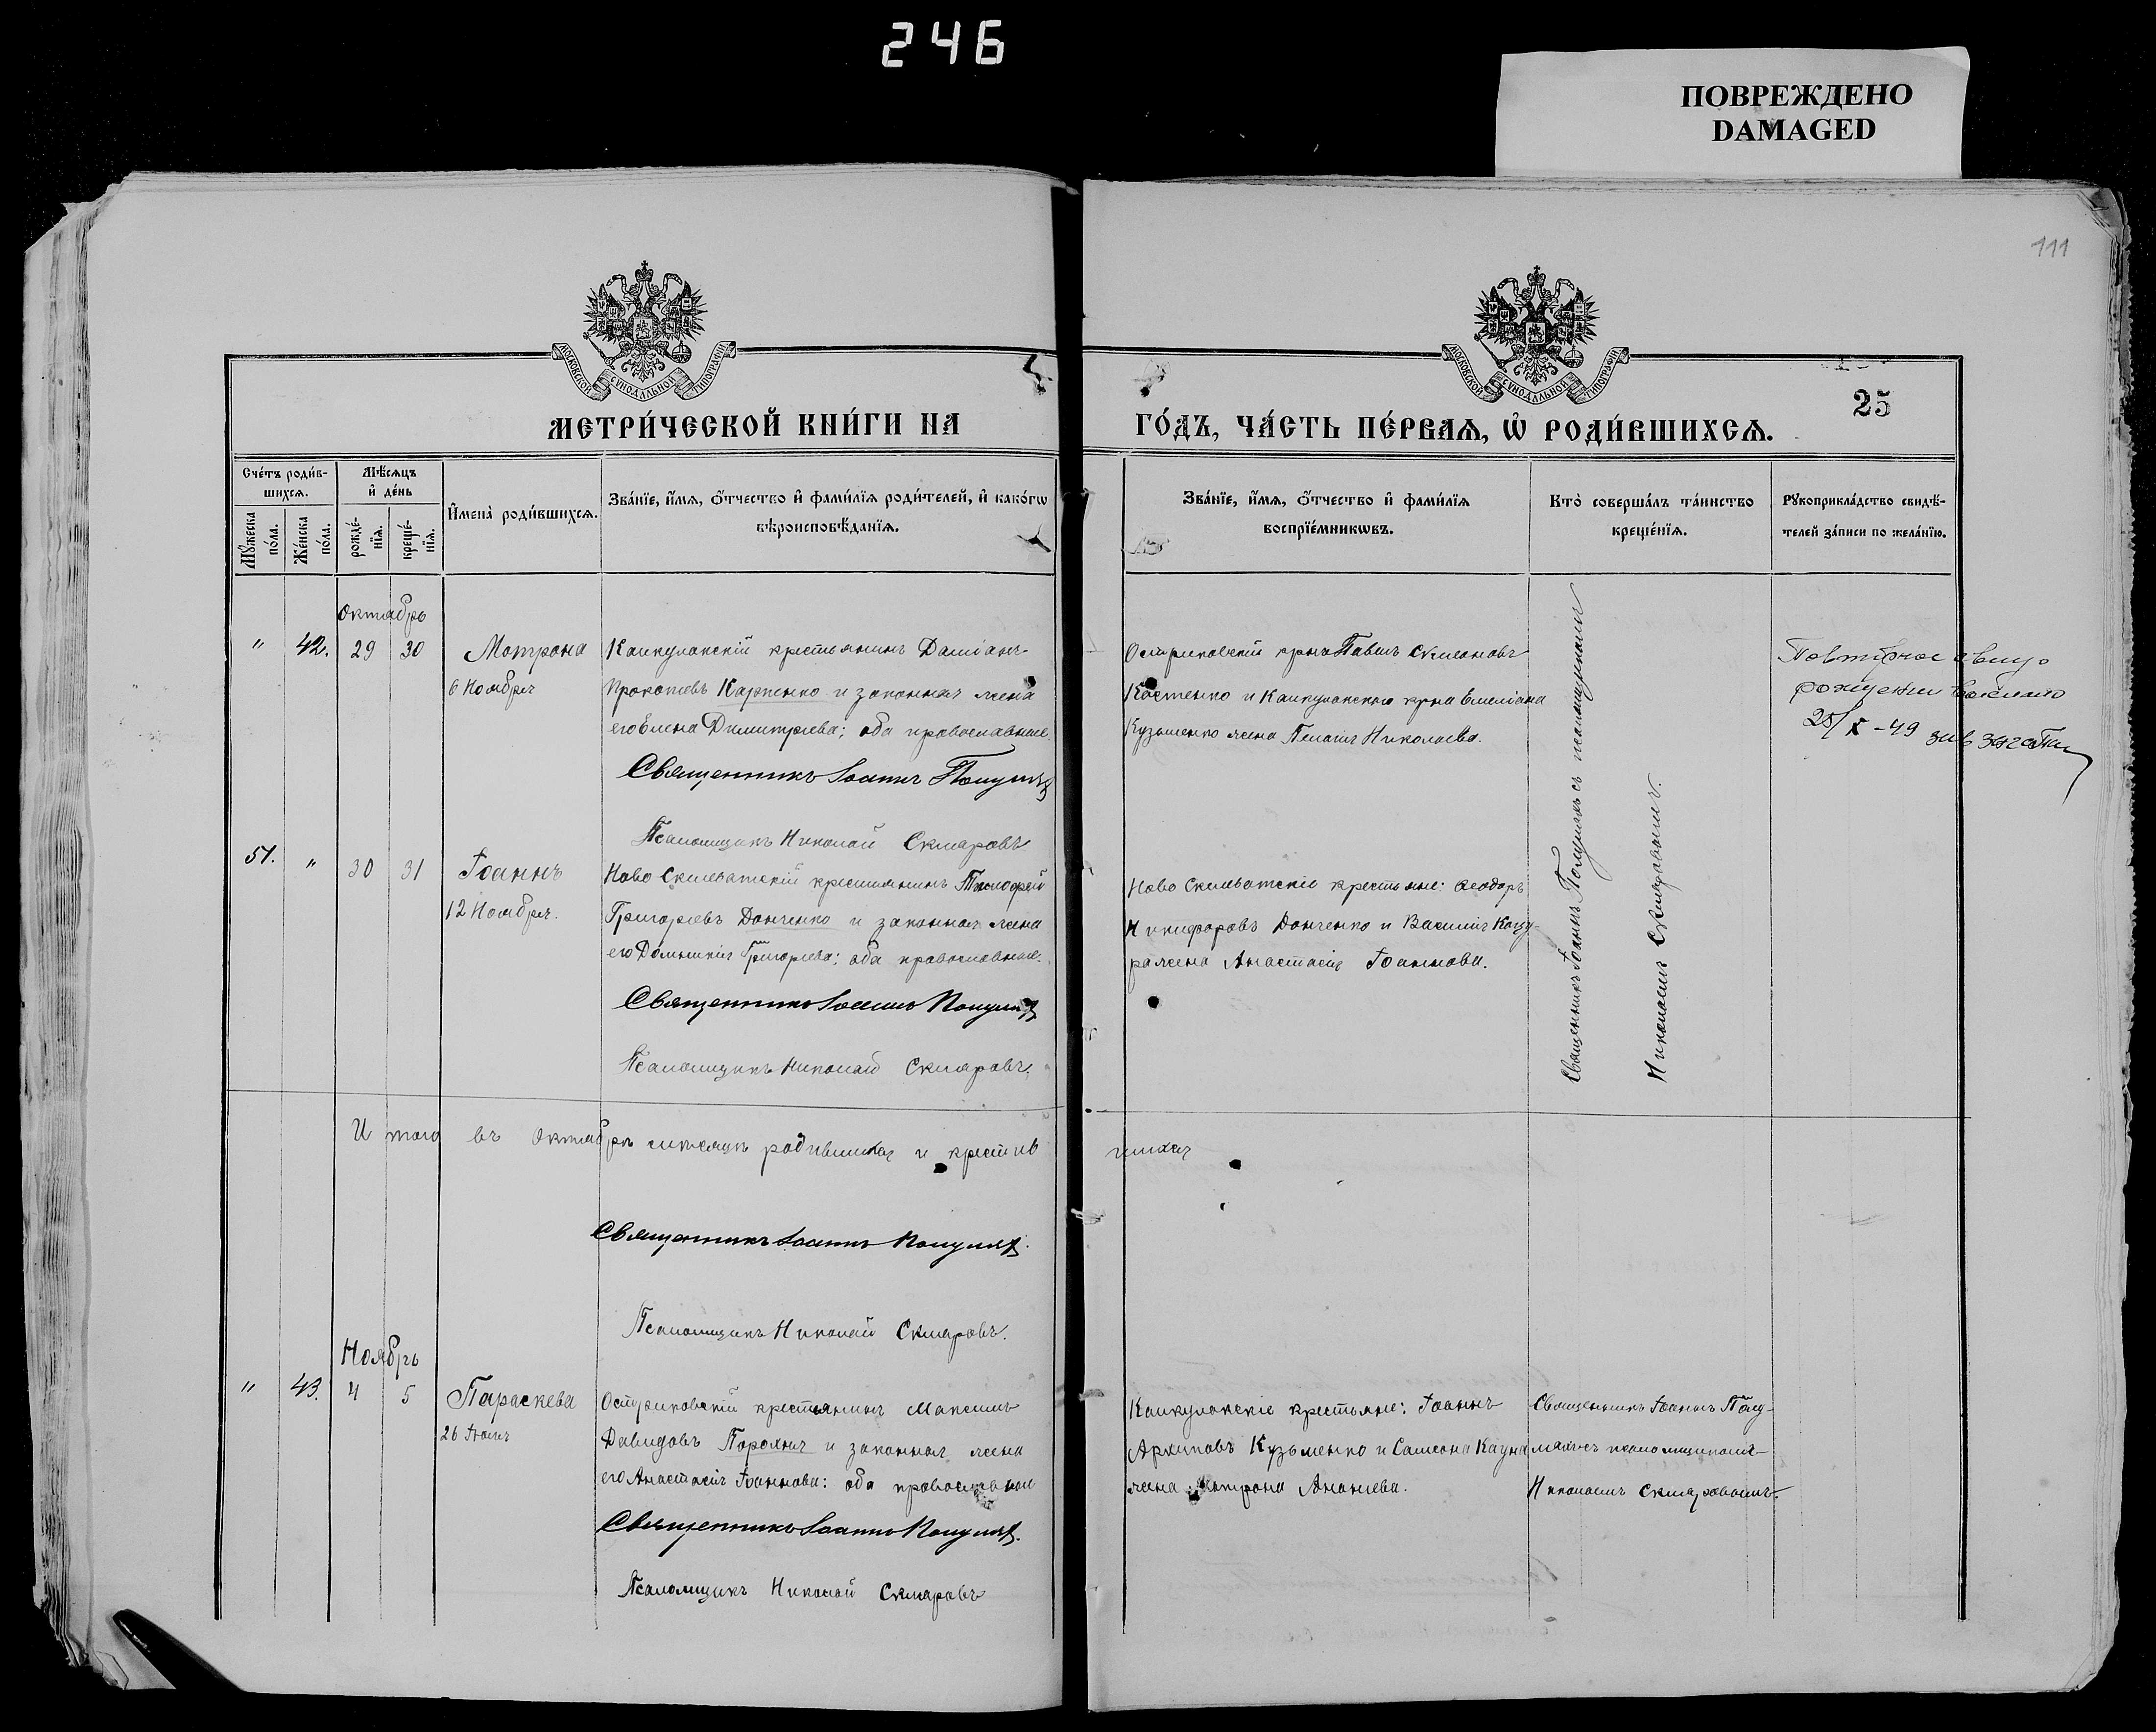 246
ПОВРЕЖДЕНО
DAMAGED
111
МОСКОВСКОЙ СѴНОДАЛЬНОЙ ТИПОГРАФІИ
МОСКОВСКОЙ СѴНОДАЛЬНОЙ ТИПОГРАФІИ
25
МЕТРИ́ЧЕСКОЙ КНИ́ГИ НА
ГО́ДЪ, ЧА́СТЬ ПЕ́РВАѦ, Ѡ҆ РОДИ́ВШИХСѦ.
Сче́тъ роди́в-
шихсѧ.
Мѣ́сѧцъ
и҆ де́нь
Мꙋ́жеска
по́ла.
Же́нска
по́ла.
рожде́-
нїѧ.
креще́-
нїѧ.
И҆мена̀ роди́вшихсѧ.
Зва́нїе, и҆́мѧ, ѻ҆́тчество и҆ фами́лїѧ роди́телей, и҆ како́гѡ
вѣроисповѣ́данїѧ.
Зва́нїе, и҆́мѧ, ѻ҆́тчество и҆ фами́лїѧ
воспрїе́мникѡвъ.
Кто̀ соверша́лъ та́инство
креще́нїѧ.
Рꙋкоприкла́дство свидѣ́-
телей за́писи по жела́нїю.
Октябрь
" 42. 29 30 Мотрона
6 Ноября
Каинкулакскій крестьянинъ Даміанъ
Прокопіевъ Карпенко и законная жена
его Елена Димитріева; оба православные.
Священникъ Іоаннъ
Псаломщикъ Николай Скляровъ
Остриковскій кр-нъ Павелъ Симеоновъ
Костенко и Каинкулакскаго кр-на Емеліана
Кузьменко жена Пелагія Николаева.
Священникъ Іоаннъ съ псаломщикомъ
Николаемъ Скляровымъ.
Повторное свид-о
рождении
25/X-49
51. " 30 31 Іоаннъ
12 Ноября.
Ново Скелеватскій крестьянинъ Тимофей
Григорьевъ Донченко и законная жена
его Домникія Григорьева; оба православные.
Священникъ Іоаннъ
Псаломщикъ Николай Скляровъ.
Ново Скелеватскіе крестьяне: Ѳеодоръ
Никифоровъ Донченко и Василія Коцу-
ра жена Анастасія Іоаннова.
Итого въ Октябрѣ мѣсяцѣ родившихся и крестив
шихся
Священникъ Іоаннъ
Псаломщикъ Николай Скляровъ.
Ноябрь
" 43. 4 5 Параскева
26
Остриковскій крестьянинъ Максимъ
Давидовъ Порохня и законная жена
его Анастасія Іоаннова: оба православные
Священникъ Іоаннъ
Псаломщикъ Николай Скляровъ
Каинкулакскіе крестьяне: Іоаннъ
Архиповъ Кузьменко и Самсона Кауна
жена Матрона Ананіева.
Священникъ Іоаннъ
съ псаломщикомъ
Николаемъ Скляровымъ.